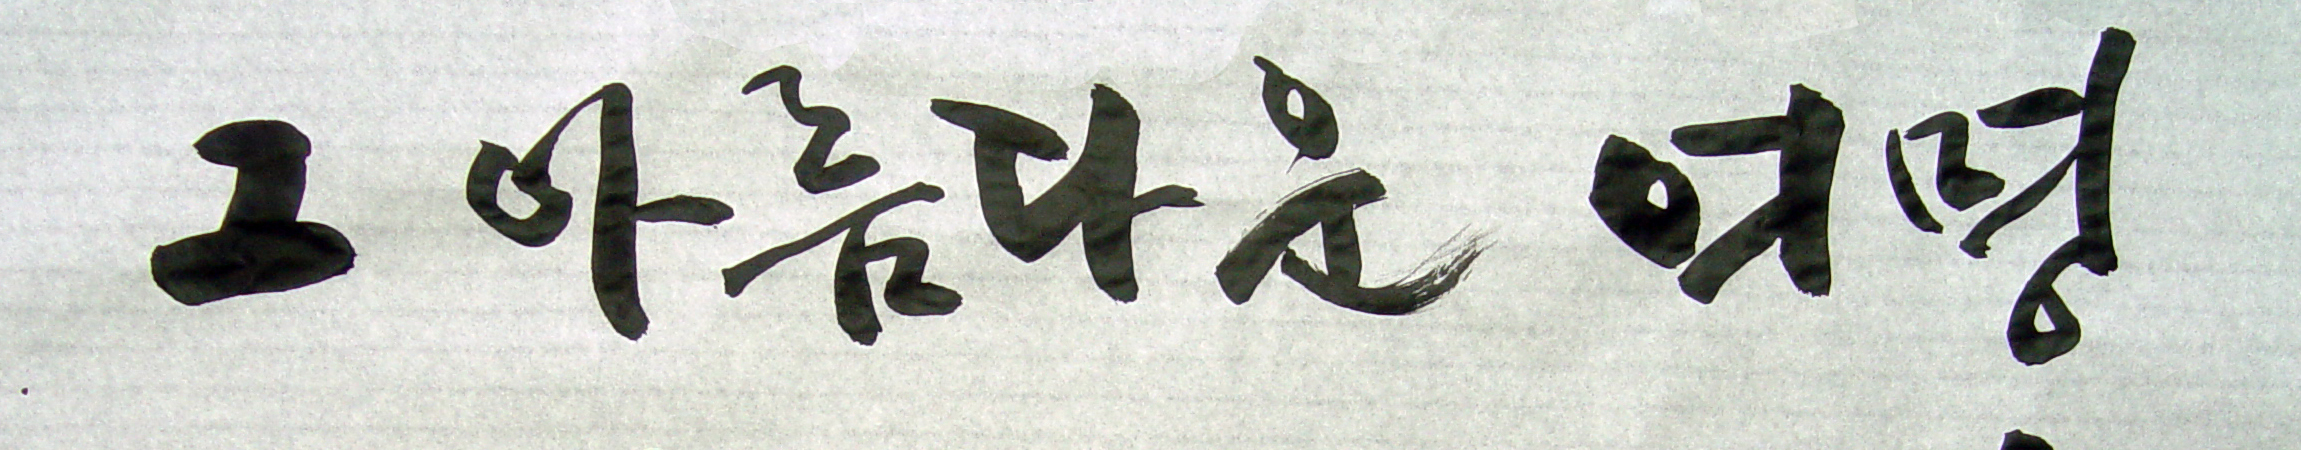 그 아름다운 여명